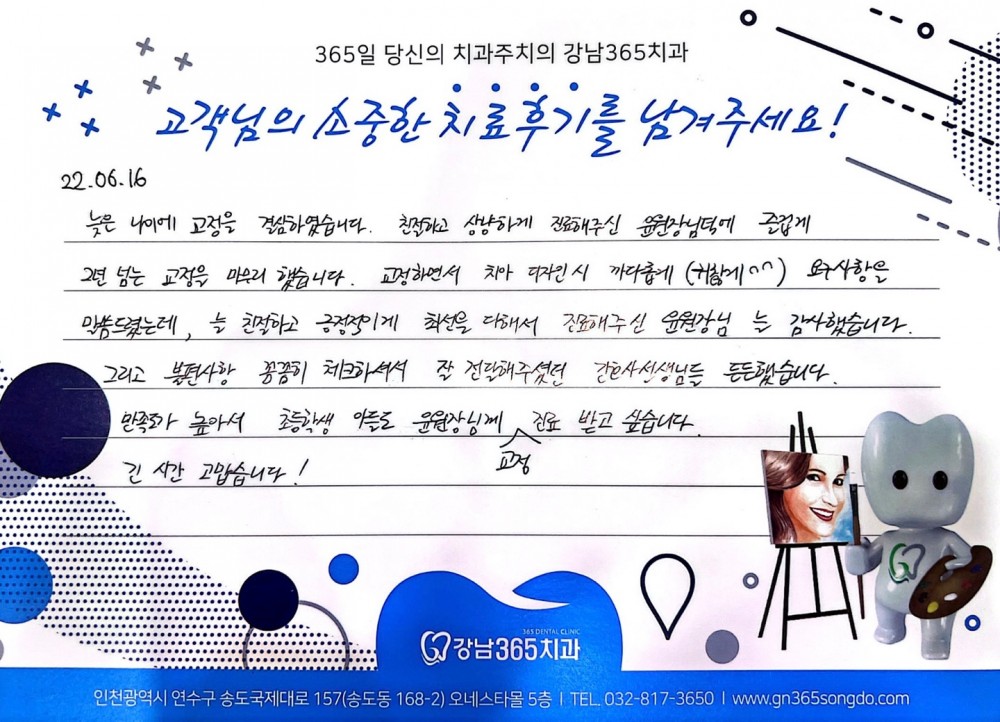 365일 당신의 치과주치의 강남365치과
고객님의 소중한 치료후기를 남겨주세요!
22.06.16
늦은 나이에 교정을 결심하였습니다. 친절하고 상냥하게 진료해주신 윤원장님덕에 즐겁게
2년 넘는 교정을 마무리 했습니다. 교정하면서 치아 디자인시 까다롭게 (귀찮게^^) 요구사항을
말씀드렸는데, 늘 친절하고 긍정적이게 최선을 다해서 진료해주신 윤원장님 늘 감사했습니다.
그리고 불편사항 꼼꼼히 체크하셔서 잘 전달해주셨던 간호사선생님들 든든했습니다.
만족도가 높아서 초등학생 아들도 윤원장님께 진료 받고 싶습니다.
교정
긴 시간 고맙습니다!
365 DENTAL CLINIC
강남365치과
인천광역시 연수구 송도국제대로 157(송도동 168-2) 오네스타몰 5층 | TEL. 032-817-3650 | www.gn365songdo.com